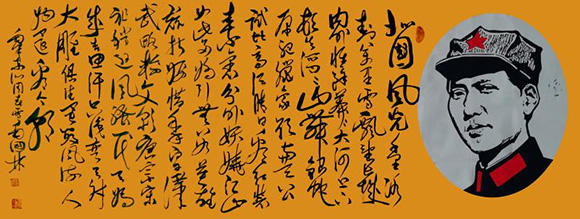 北国风光千里冰
封万里雪飘望长城
内外惟余莽莽大河上下
顿失滔滔山舞银蛇
原驰蜡象欲与天公
试比高须晴日看红装
素裹分外妖娆江山
如此多娇引无数英雄
竞折腰惜秦皇汉
武略输文采唐宗宋
祖稍逊风骚一代天骄
成吉思汗只识弯弓射
大雕俱往矣数风流人
物还看今朝